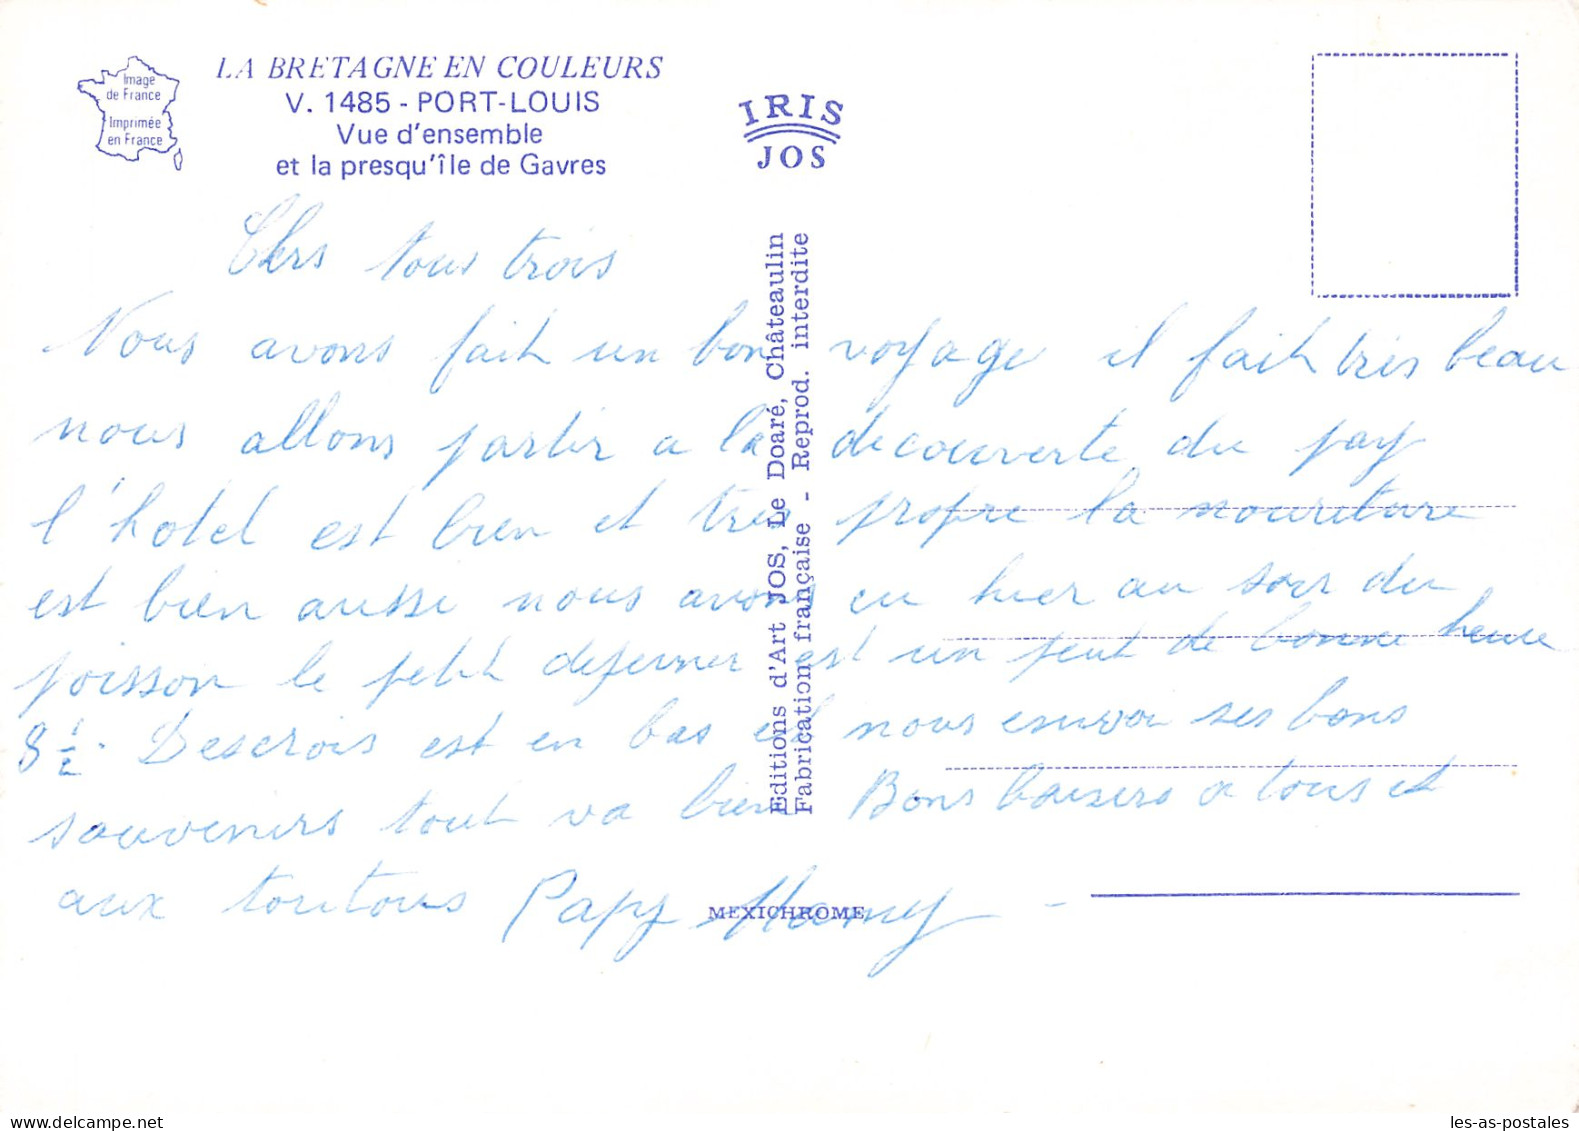 Image
de France
Imprimée
en France
LA BRETAGNE EN COULEURS
V. 1485 - PORT-LOUIS
Vue d'ensemble
et la presqu'île de Gavres
IRIS
JOS
Editions d'Art JOS, Le Doaré, Châteaulin
Fabrication française - Reprod. interdite
MEXICHROME
Chers tous trois
Nous avons fait un bon voyage il fait très beau
nous allons partir a la decouverte du pay
l'hotel est bien et tres propre la nouriture
est bien aussi nous avons eu hier au soir du
poisson le petit dejeuner est un peut de bonne heure
8 1/2. est en bas et nous envoi ses bons
souvenirs tout va bien Bons baisers a tous et
aux toutous Papy Mamy -
Delcampe.net
les-as-postales